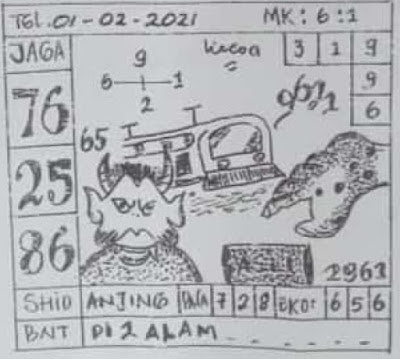 TGL. 01-02-2021 MK: 6:1
JAGA
76
25
86
9
6 1
2
3 1 9
9
6
9621
65
2963
SHIO ANJING 7 2 8 EKOR 6 5 6
BNT DI 2 ALAM